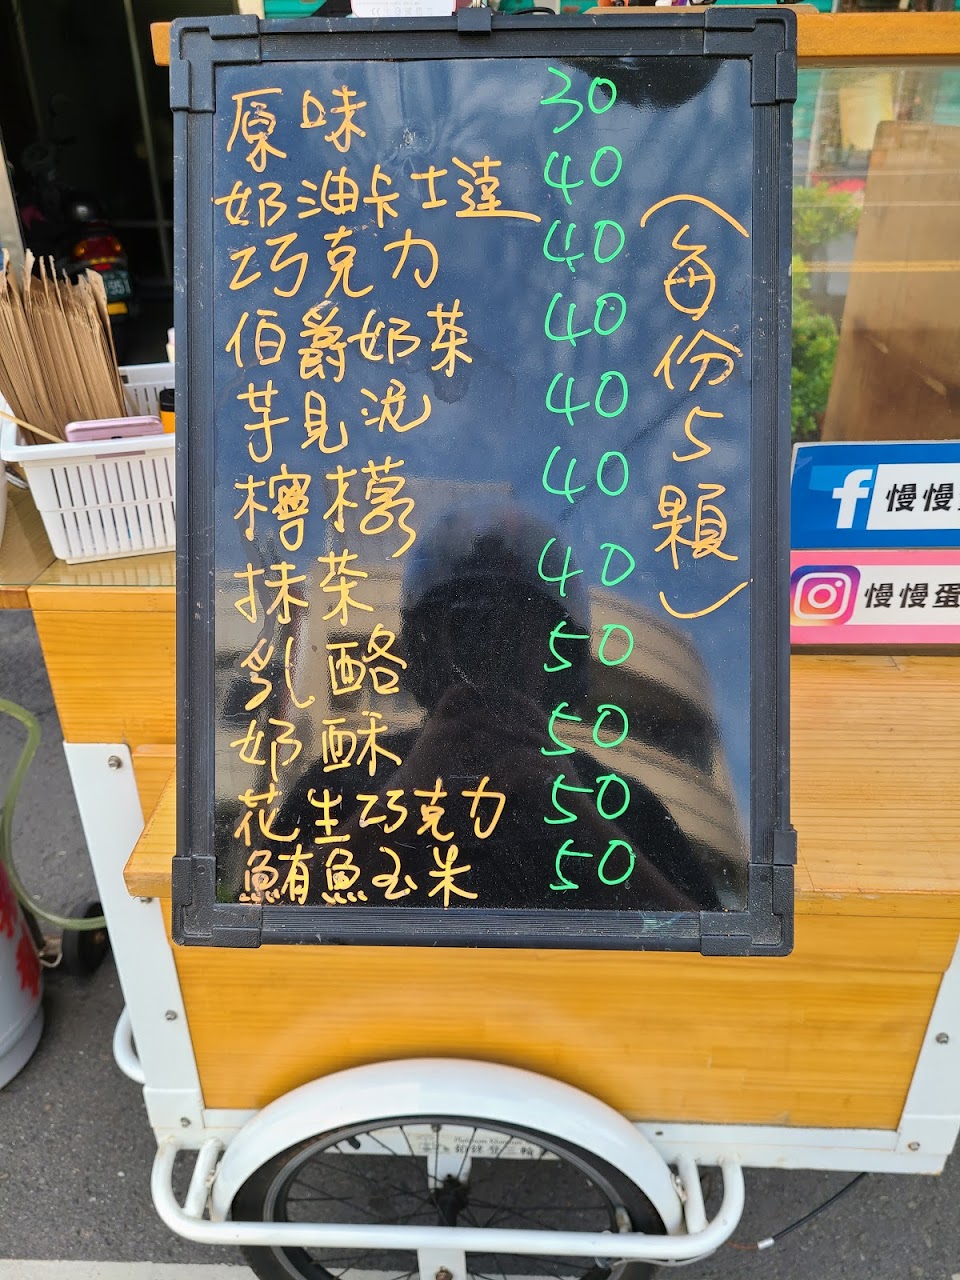 原味 30
奶油卡士達 40
巧克力 40
伯爵奶茶 40
芋見泥 40
檸檬 40
抹茶 40
乳酪 50
奶酥 50
花生巧克力 50
鮪魚玉米 50
(每份5顆)
慢慢
慢慢蛋